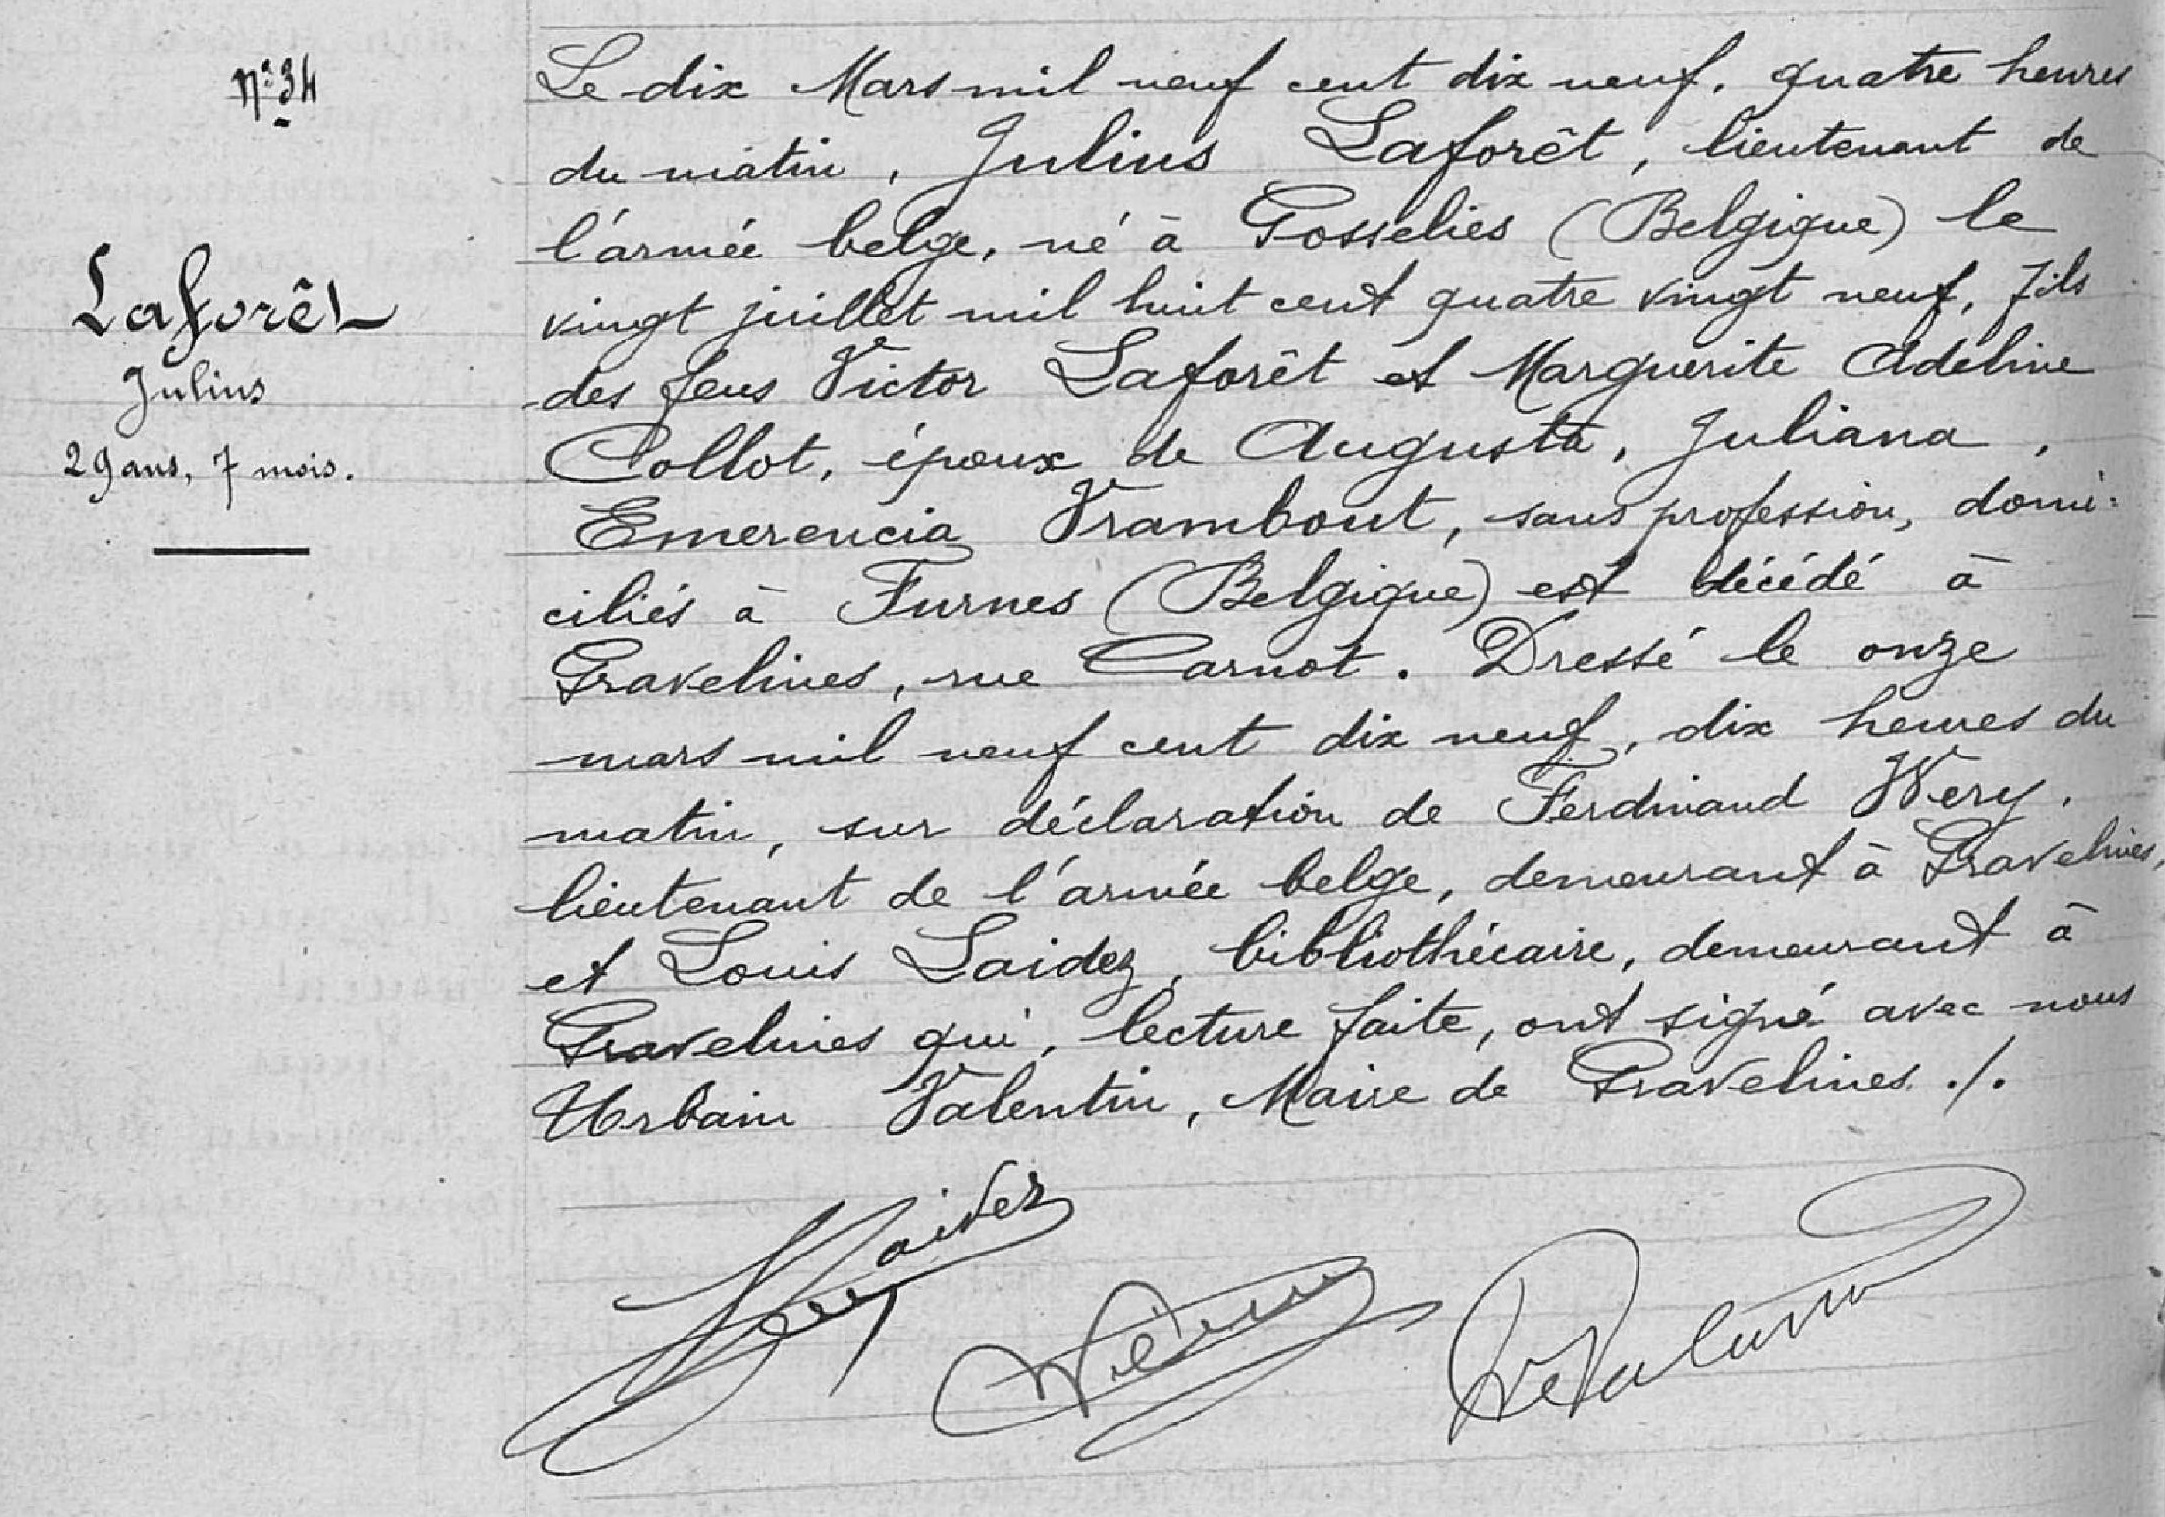 N° 34
Laforêt
Julius
29 ans, 7 mois.
Le dix Mars mil neuf cent dix neuf, quatre heures
du matin, Julius Laforêt, lieutenant de
l'armée belge, né à Gosselies (Belgique) le
vingt juillet mil huit cent quatre vingt neuf, fils
des feus Victor Laforêt et Marguerite Adeline
Collot, époux de Augusta, Juliana,
Emerencia Vrambout, sans profession, domi-
ciliés à Furnes (Belgique) est décédé à
Gravelines, rue Carnot. Dressé le onze
mars mil neuf cent dix neuf, dix heures du
matin, sur déclaration de Ferdinand Wery,
lieutenant de l'armée belge, demeurant à Gravelines,
et Louis Laidez, bibliothécaire, demeurant à
Gravelines qui, lecture faite, ont signé avec nous
Urbain Valentin, Maire de Gravelines ./.
Laidez